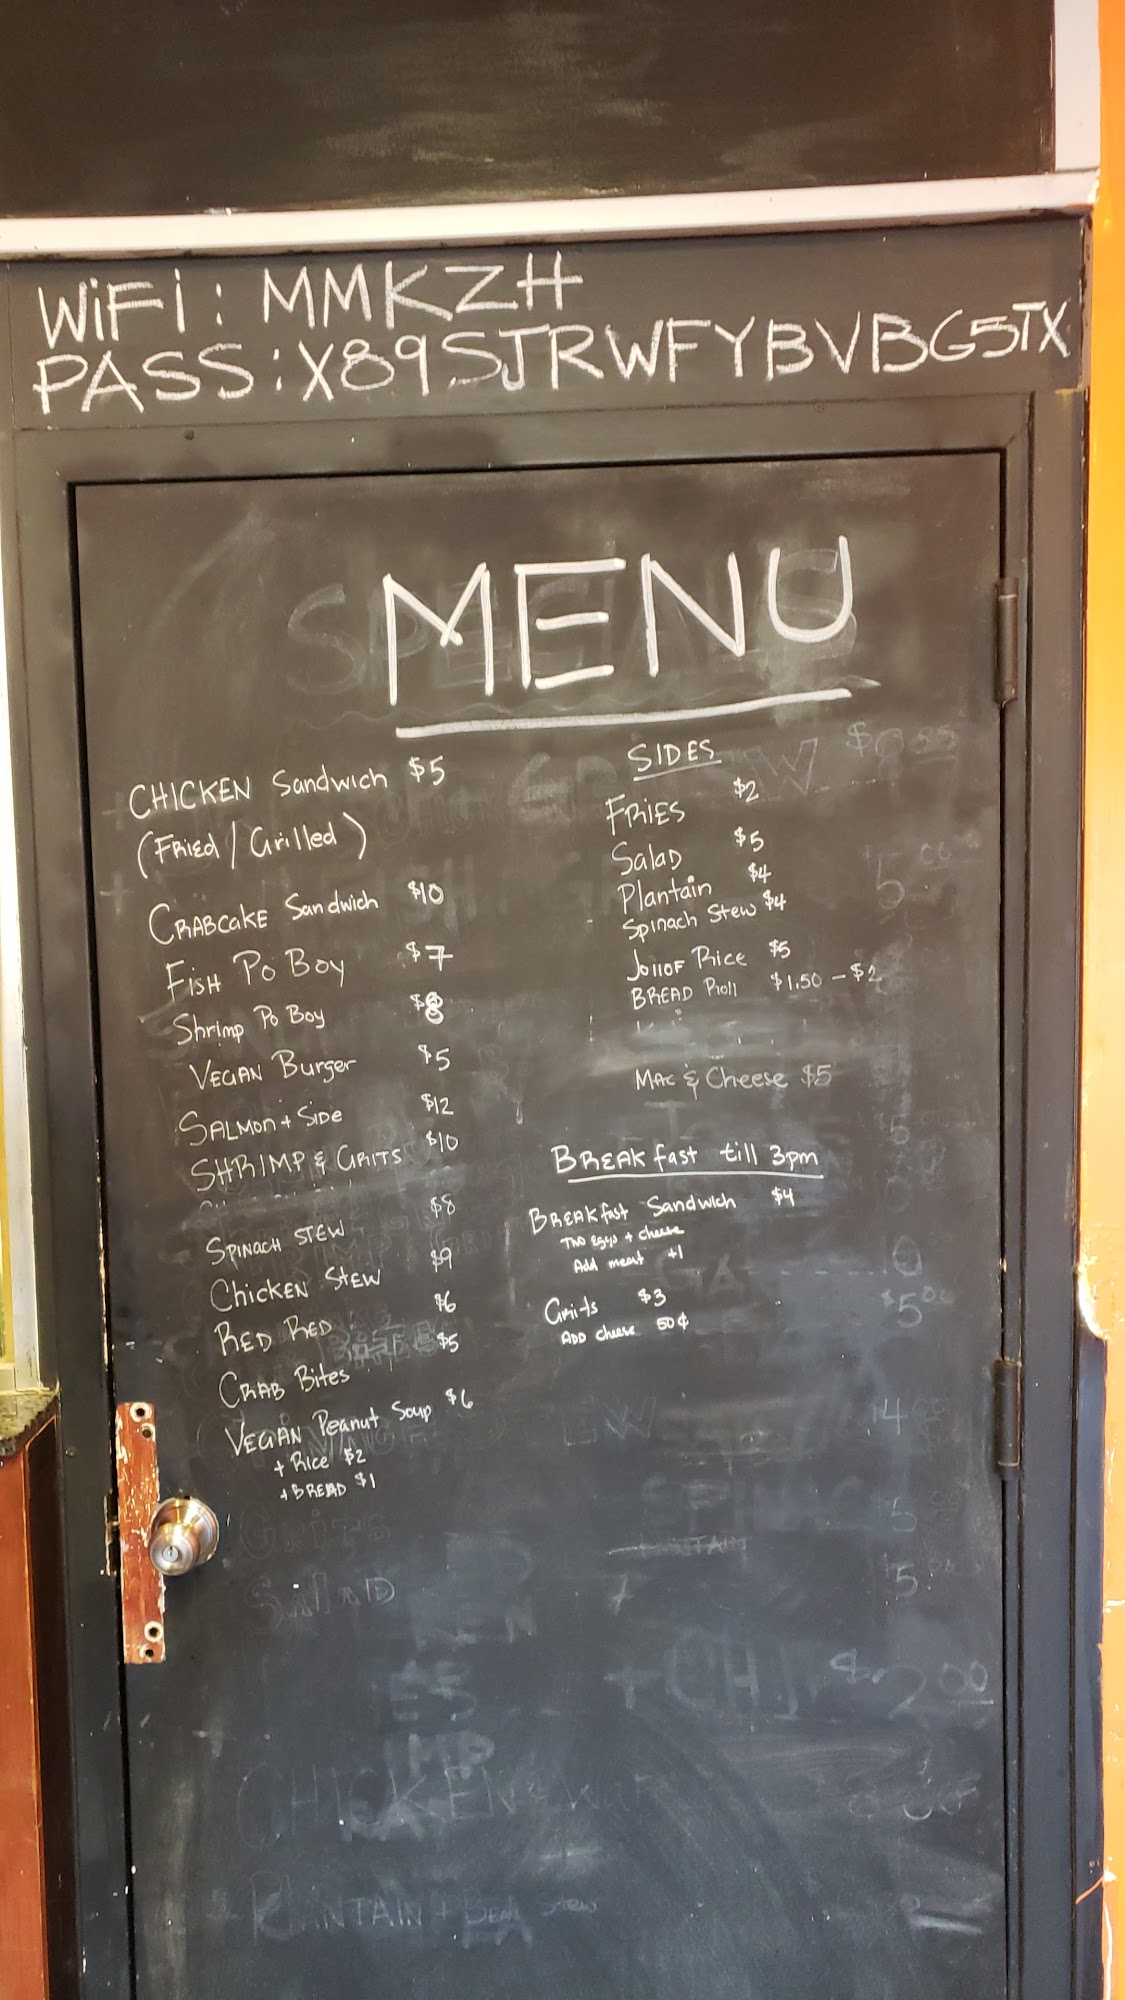 WiFi: MMKZH
PASS: X89SJRWFYBVBG5TX
MENU
CHICKEN Sandwich $5
(Fried/Grilled)
CRABCAKE Sandwich $10
Fish Po Boy $7
Shrimp Po Boy $8
VEGAN Burger $5
SALMON + SIDE $12
SHRIMP & GRITS $10
SPINACH STEW $8
Chicken STEW $9
RED RED $6
CRAB Bites $5
VEGAN Peanut Soup $6
+ Rice $2
+ BREAD $1
SIDES
FRIES $2
Salad $5
Plantain $4
Spinach Stew $4
Jollof Rice $5
BREAD Roll $1.50 - $2
Mac & Cheese $5
BREAKfast till 3pm
BREAKfast Sandwich $4
Two eggs + cheese
Add meat +1
Grits $3
ADD cheese 50¢